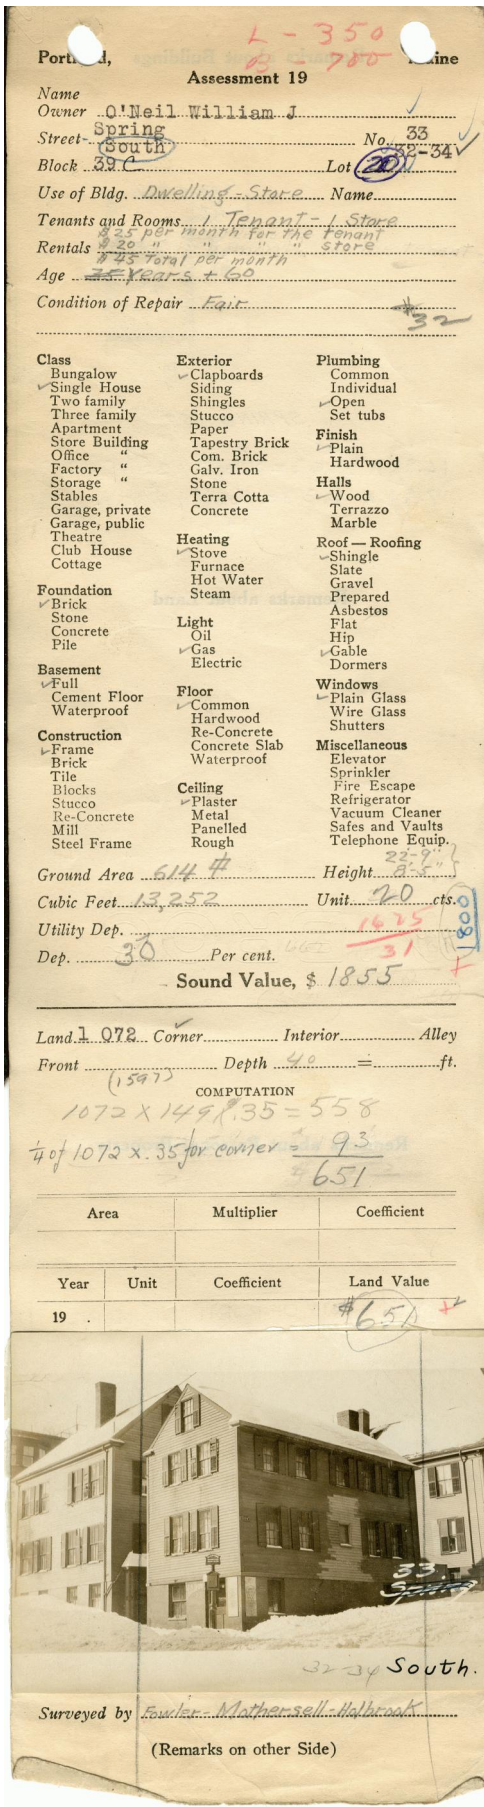 L - 350
B - 700
Portland, Maine
Assessment 19
Name
Owner O'Neil William J
Spring
Street South No. 33
32-34
Block 39 C Lot 20
Use of Bldg. Dwelling - Store Name
Tenants and Rooms 1 Tenant - 1 Store
$25 per month for the tenant
Rentals $20 " " " " store
$45 Total per month
Age 35 years + 60
Condition of Repair Fair
$32
Class
Bungalow
Single House
Two family
Three family
Apartment
Store Building
Office "
Factory "
Storage "
Stables
Garage, private
Garage, public
Theatre
Club House
Cottage
Foundation
Brick
Stone
Concrete
Pile
Basement
Full
Cement Floor
Waterproof
Construction
Frame
Brick
Tile
Blocks
Stucco
Re-Concrete
Mill
Steel Frame
Exterior
Clapboards
Siding
Shingles
Stucco
Paper
Tapestry Brick
Com. Brick
Galv. Iron
Stone
Terra Cotta
Concrete
Heating
Stove
Furnace
Hot Water
Steam
Light
Oil
Gas
Electric
Floor
Common
Hardwood
Re-Concrete
Concrete Slab
Waterproof
Ceiling
Plaster
Metal
Panelled
Rough
Plumbing
Common
Individual
Open
Set tubs
Finish
Plain
Hardwood
Halls
Wood
Terrazzo
Marble
Roof — Roofing
Shingle
Slate
Gravel
Prepared
Asbestos
Flat
Hip
Gable
Dormers
Windows
Plain Glass
Wire Glass
Shutters
Miscellaneous
Elevator
Sprinkler
Fire Escape
Refrigerator
Vacuum Cleaner
Safes and Vaults
Telephone Equip.
22'-9"
Ground Area 614 # Height 8'-5"
Cubic Feet 13,252 Unit 20 cts.
1800
Utility Dep. 1625
31
Dep. 30 Per cent.
Sound Value, $ 1855
Land 1 072 Corner Interior Alley
Front Depth 40 = ft.
(1597)
COMPUTATION
1072 X 149 X .35 = 558
1/4 of 1072 X .35 for corner = 93
651
Area Multiplier Coefficient
Year Unit Coefficient Land Value
19 . $651
33
Spring
32-34 South.
Surveyed by Fowler - Mothersell - Holbrook
(Remarks on other Side)